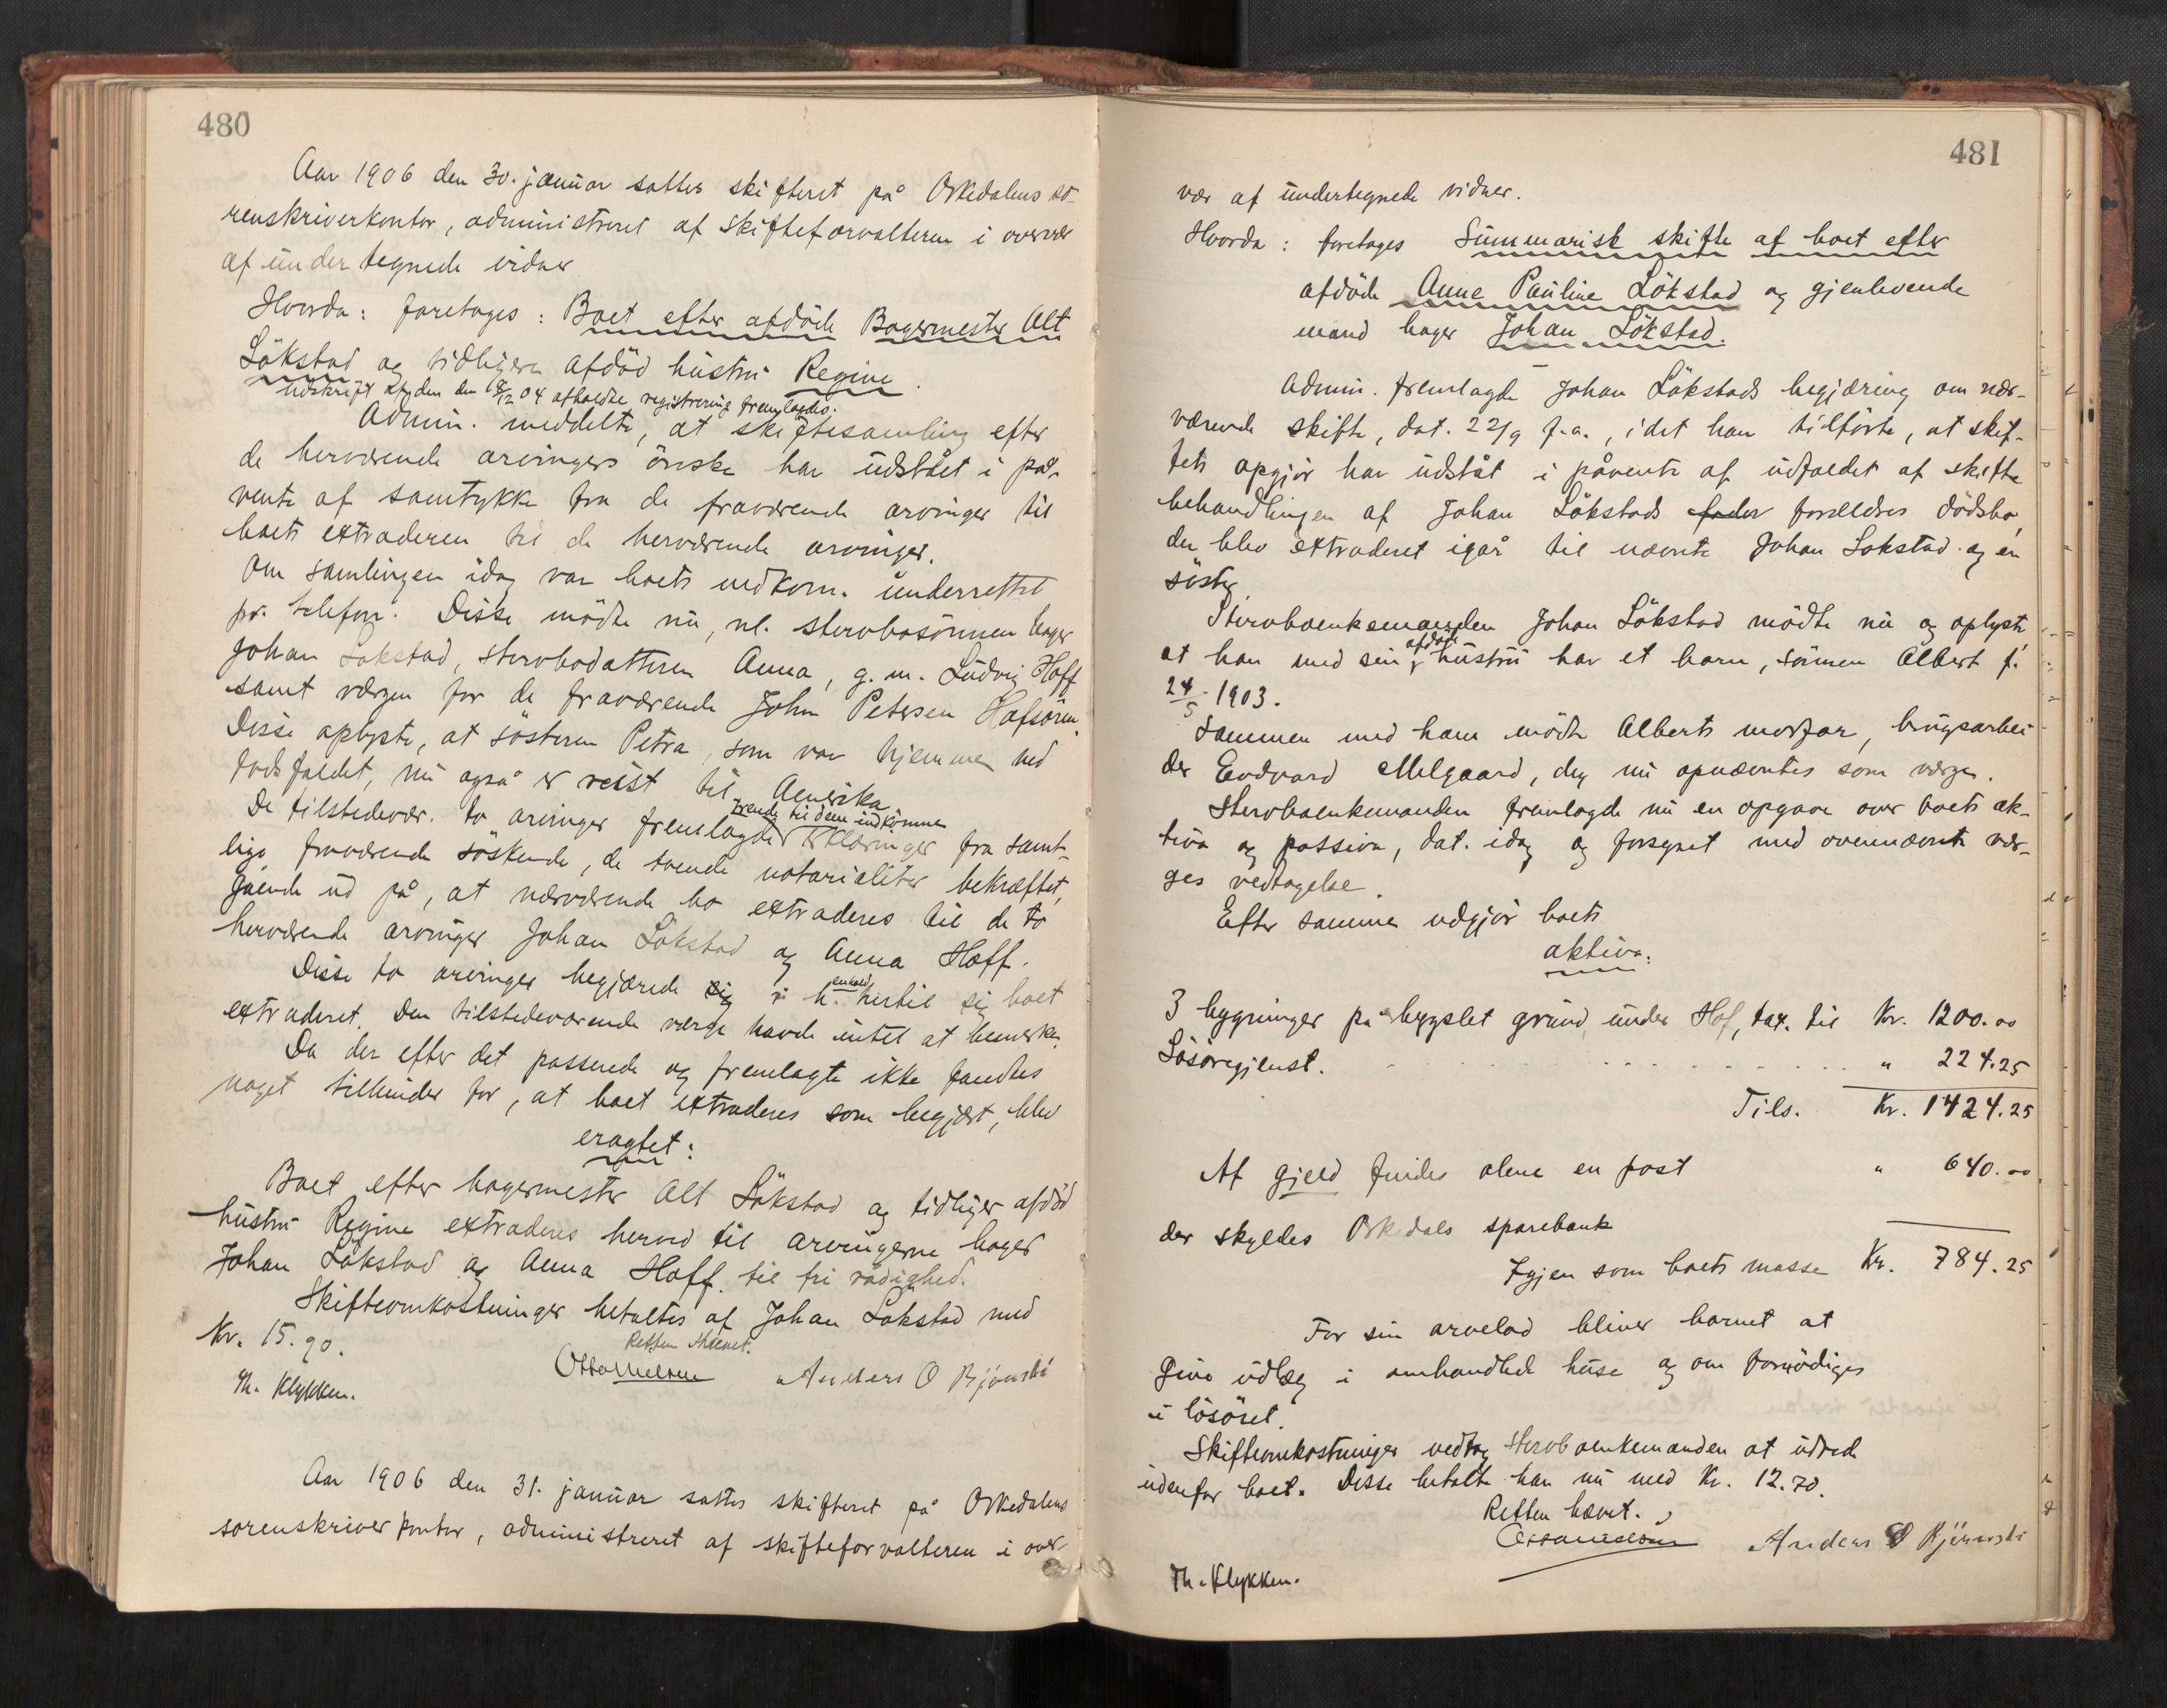 480
Aar 1906 den 30. januar sattes skifteret på Orkedalens so-
renskriverkontor, administreret af skifteforvalteren i overvær
af undertegnede vidner
Hvorda: foretoges: Boet efter afdöde Bagermester Alt
Lökstad og tidligere afdöd hustru Regine.
Udskrift af den den 8/12 04 afholdte registrering fremlagdes.
Admin. meddelte, at skiftesamling efter
de herværende arvingers önske har udstået i på-
vente af samtykke fra de fraværende arvinger til
boets extraderen til de herværende arvinger.
Om samlingen idag var boets vedkom. underrettet
pr. telefon. Disse mödte nu, nl. stervbosönnen bager
Johan Lökstad, stervbodatteren Anna, g. m. Ludvig Hoff
samt værgen for de fraværende John Petersen Hofsören.
Disse oplyste, at sösteren Petra, som var hjemme ved
dödsfaldet, nu også er reist til Amerika.
De tilstedevær. to arvinger fremlagde
til dem indkomne
erklæringer fra samt-
lige fraværende söskende, de toende notarialiter bekræftet,
gående ud på, at nærværende bo extraderes til de to
herværende arvinger Johan Lökstad og Anna Hoff.
Disse to arvinger begjærede sig i h.enhold hertil sig boet
extraderet. Den tilstedeværende værge havde intet at bemærke.
Da der efter det passerede og fremlagte ikke fandtes
noget tilhinder for, at boet extraderes som begjært, blev
eragtet:
Boet efter bagermester Alt Lökstad og tidliger afdöd
hustru Regine extraderes herved til arvingerne bager
Johan Lökstad og Anna Hoff til fri rådighed.
Skifteomkostninger betaltes af Johan Lökstad med
Kr. 15.90.
Retten hævet.
Th. Klykken.
Anders O Björnsbö
Aar 1906 den 31. januar sattes skifteret på Orkedalens
sorenskriverkontor, administreret af skifteforvalteren i over-
481
vær af undertegnede vidner.
Hvorda: foretoges Summarisk skifte af boet efter
afdöde Anne Pauline Lökstad og gjenlevende
mand bager Johan Lökstad.
Admin. fremlagde Johan Lökstads begjæring om nær-
værende skifte, dat. 22/9 f.a., idet han tilförte, at skif-
tets opgjör har udståt i påvente af udfaldet af skifte
behandlingen af Johan Lökstads fader forældres dödsbo,
der blev extraderet igår til nævnte Johan Lökstad og en
söster.
Stervboenkemanden Johan Lökstad mödte nu og oplyste
at han med sin afdöde hustru har et barn, sönnen Albert f.
24/5 1903.
Sammen med ham mödte Alberts morfar, brugsarbei
der Eedvard Melgaard, der nu opnævntes som værge.
Stervboenkemanden fremlagde nu en opgave over boets ak-
tiva og passiva, dat. idag og forsynet med ovennævnte vær-
ges vedtagelse.
Efter samme udgjör boets
aktiva:
3 bygninger på bygslet grund under Hof, tax. til Kr. 1200.00
Lösöregjenst. " 224.25
Tils. Kr. 1424.25
Af gjeld findes alene en post " 640.00
der skyldes Orkedals sparebank
Igjen som boets masse Kr. 784.25
For sin arvelod bliver barnet at
give udlæg i omhandlede huse og om fornödiges
i lösöret.
Skifteomkostninger vedtog stervboenkemanden at udrede
udenfor boet. Disse betalte han nu med Kr. 12.70.
Retten hævet.
Anders O Björnsbö
Th. Klykken.